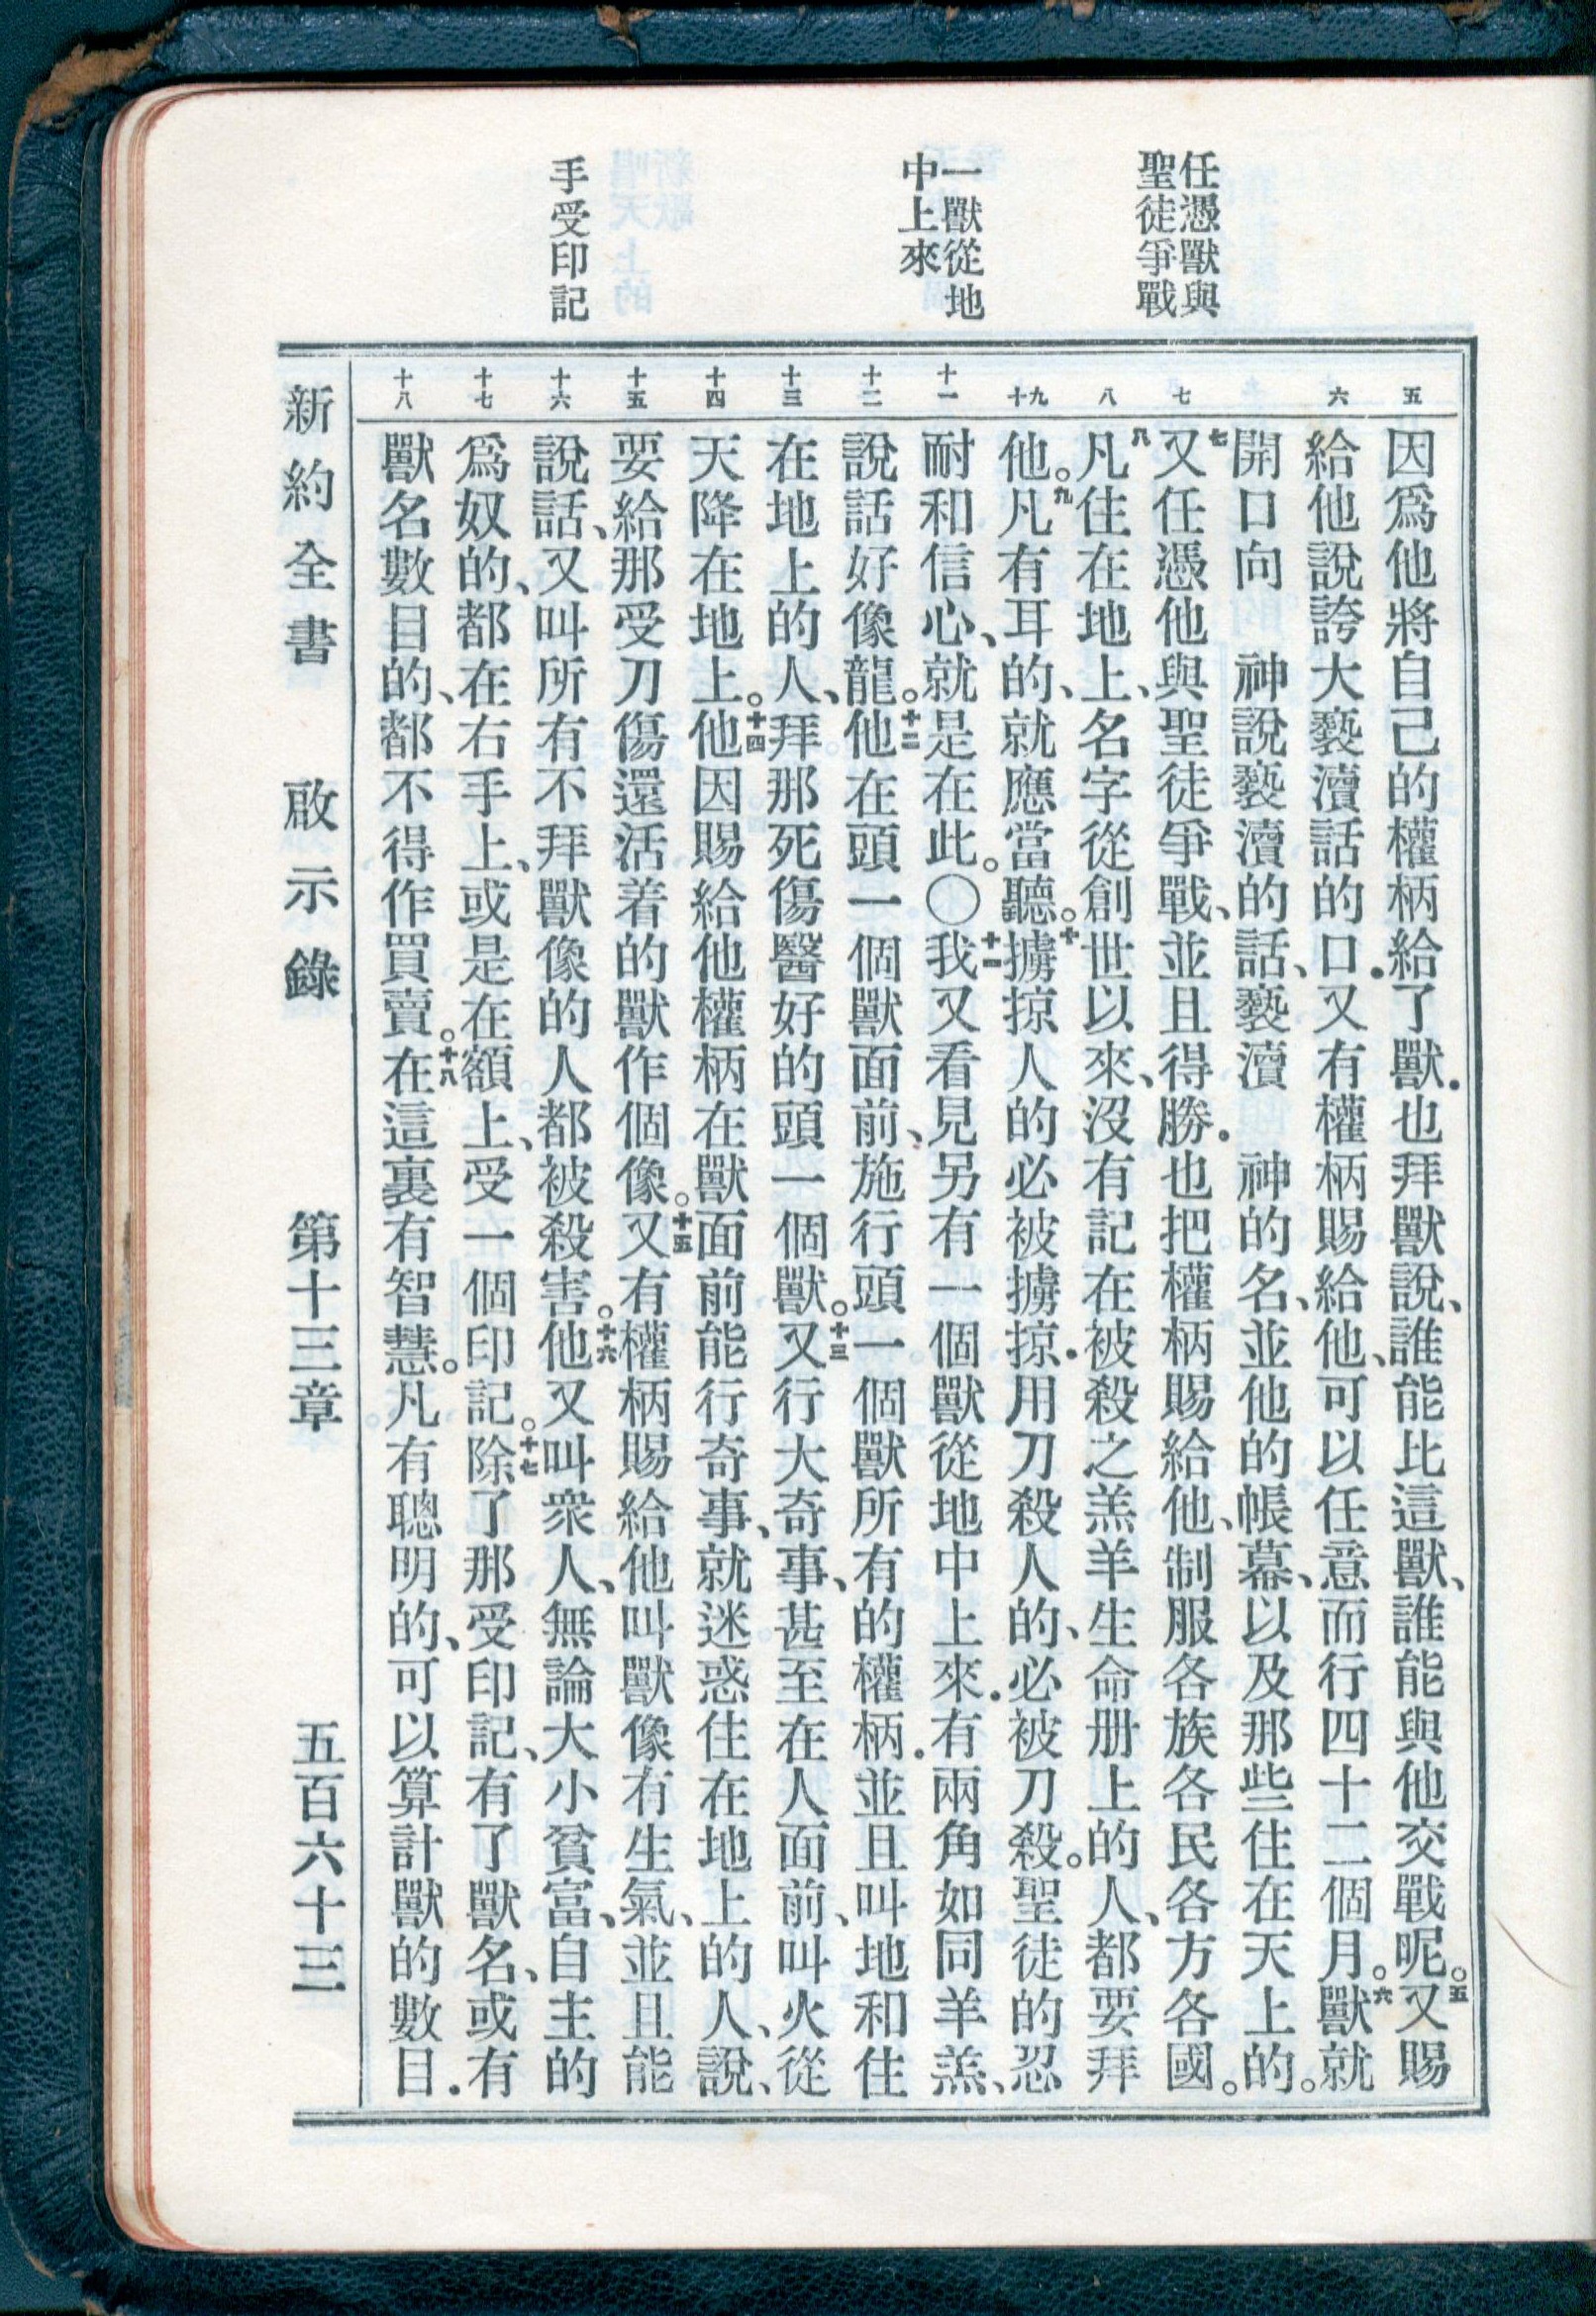 任憑獸與
聖徒爭戰
一獸從地
中上來
手受印記
五
六
七
八
九十
十一
十二
十三
十四
十五
十六
十七
十八
因爲他將自己的權柄給了獸．也拜獸說、誰能比這獸、誰能與他交戰呢。五又賜
給他說誇大褻瀆話的口．又有權柄賜給他、可以任意而行四十二個月。六獸就
開口向　神說褻瀆的話、褻瀆　神的名、並他的帳幕、以及那些住在天上的。
七又任憑他與聖徒爭戰、並且得勝．也把權柄賜給他、制服各族各民各方各國。
八凡住在地上、名字從創世以來、沒有記在被殺之羔羊生命册上的人、都要拜
他。九凡有耳的、就應當聽。十擄掠人的必被擄掠．用刀殺人的、必被刀殺。聖徒的忍
耐和信心、就是在此。〇十一我又看見另有一個獸從地中上來．有兩角如同羊羔、
說話好像龍。十二他在頭一個獸面前、施行頭一個獸所有的權柄．並且叫地和住
在地上的人、拜那死傷醫好的頭一個獸。十三又行大奇事、甚至在人面前、叫火從
天降在地上。十四他因賜給他權柄在獸面前能行奇事、就迷惑住在地上的人、說、
要給那受刀傷還活着的獸作個像。十五又有權柄賜給他叫獸像有生氣、並且能
說話、又叫所有不拜獸像的人都被殺害。十六他又叫衆人、無論大小貧富、自主的
爲奴的、都在右手上、或是在額上、受一個印記。十七除了那受印記、有了獸名、或有
獸名數目的、都不得作買賣。十八在這裏有智慧。凡有聰明的、可以算計獸的數目．
新約全書　啟示錄　第十三章　五百六十三